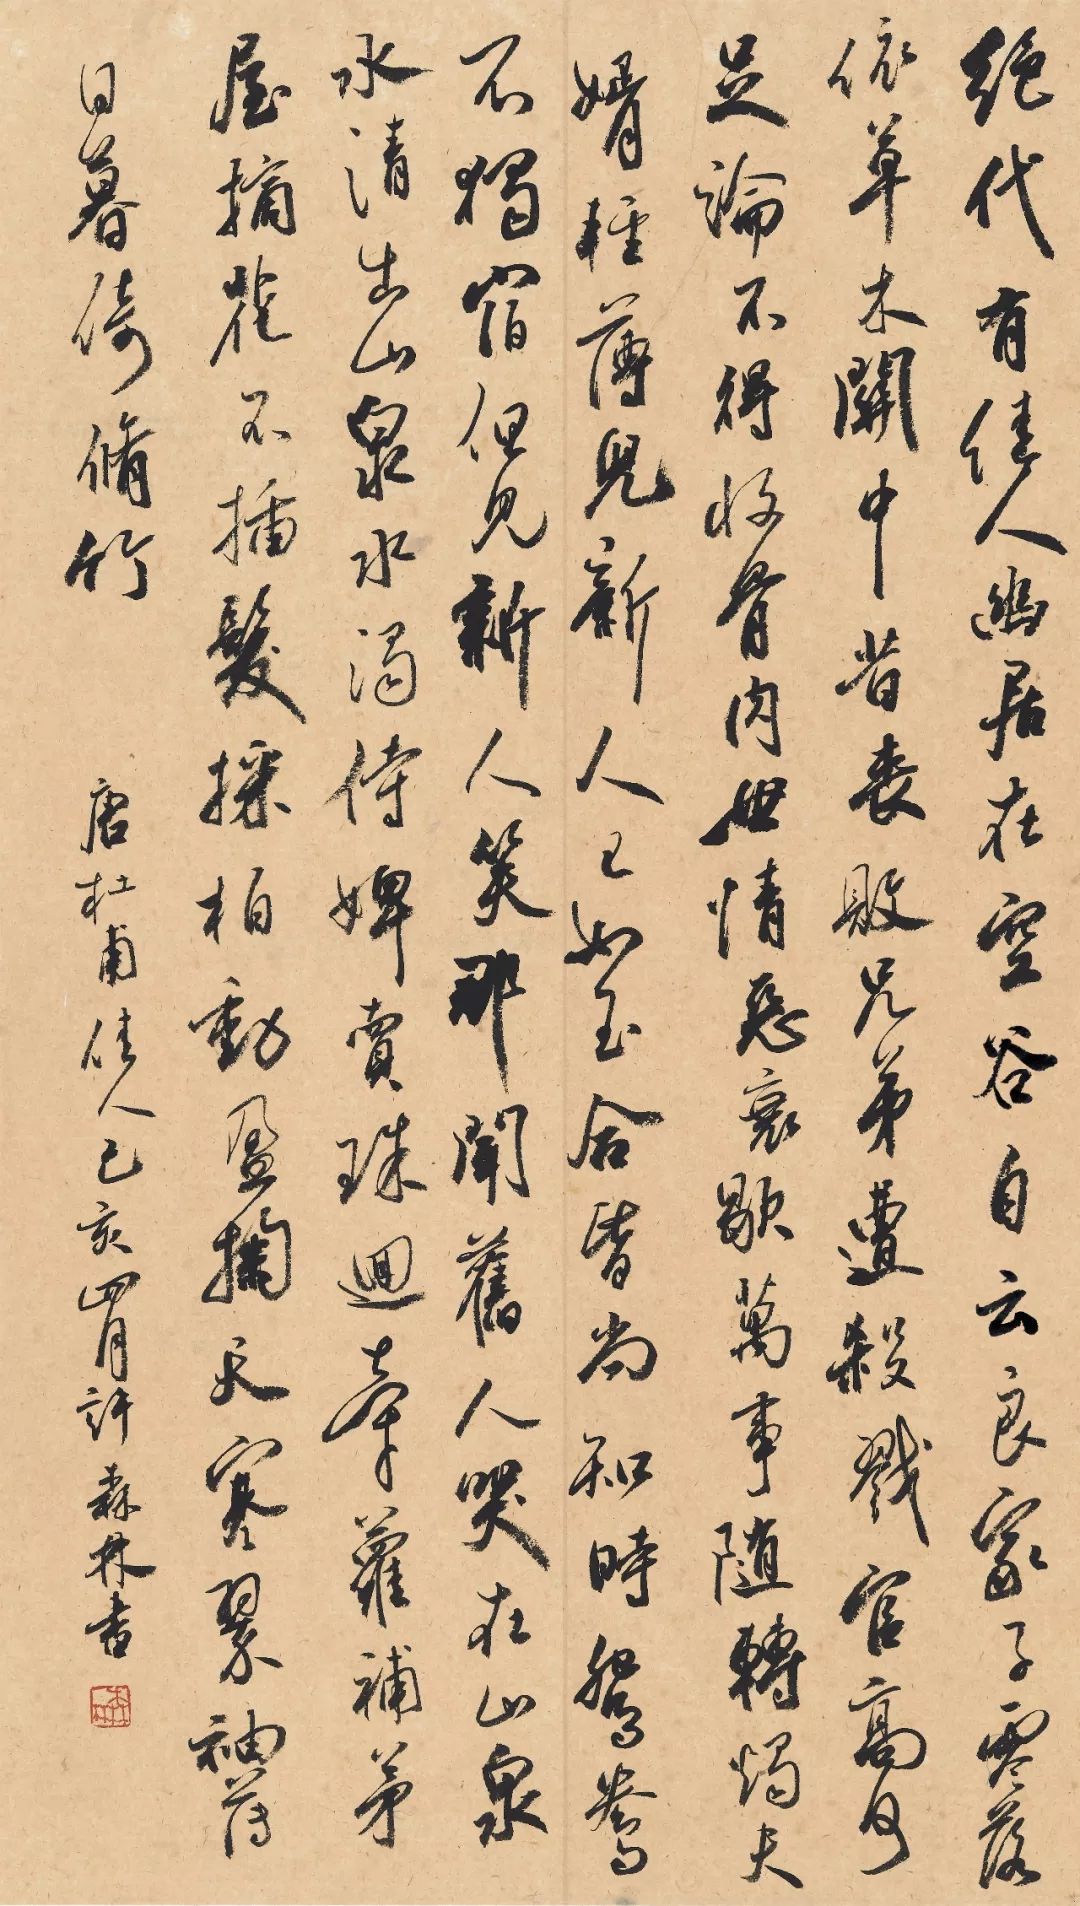 絶代有佳人幽居在空谷自云良家子零落
依草木關中昔喪敗兄弟遭殺戮官高何
足論不得收骨肉世情惡衰歇萬事随轉燭夫
婿輕薄兒新人已如玉合昏尚知時鴛鴦
不獨宿但見新人笑那聞舊人哭在山泉
水清出山泉水濁侍婢賣珠迴牽蘿補茅
屋摘花不插髮採柏動盈掬天寒翠袖薄
日暮倚脩竹
唐杜甫佳人己亥四月許森林書